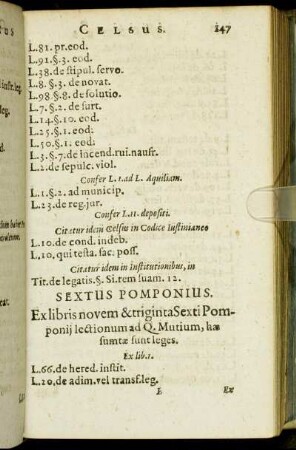 CELSUS. 247
L.81. pr.eod.
L.91.§.3. eod.
L.38.de stipul. servo.
L.8. §.3. de novat.
L.98.§.8. de solutio.
L.7. §.2. de furt.
L.14.§.10. eod.
L.25.§.1. eod:
L.50.§.1. eod:
L.3.§.7.de incend.rui.naufr.
L.2.de sepulc. viol.
Confer L. 1.ad L. Aquiliam.
L.1.§.2. ad municip.
L.23.de reg.jur.
Confer L.11. depositi.
Citatur idem Celsus in Codice Iustinianeo
L.10.de cond. indeb.
L.10. qui testa. fac. poss.
Citatur idem in Institutionibus, in
Tit.de legatis.§. Si rem suam. 12.
SEXTUS POMPONIUS.
Ex libris novem & triginta Sexti Pom-
ponij lectionum ad Q. Mutium, hæ
sumtæ sunt leges.
Ex lib.1.
L.66.de hered. instit.
L.20.de adim.vel transf.leg.
Ex